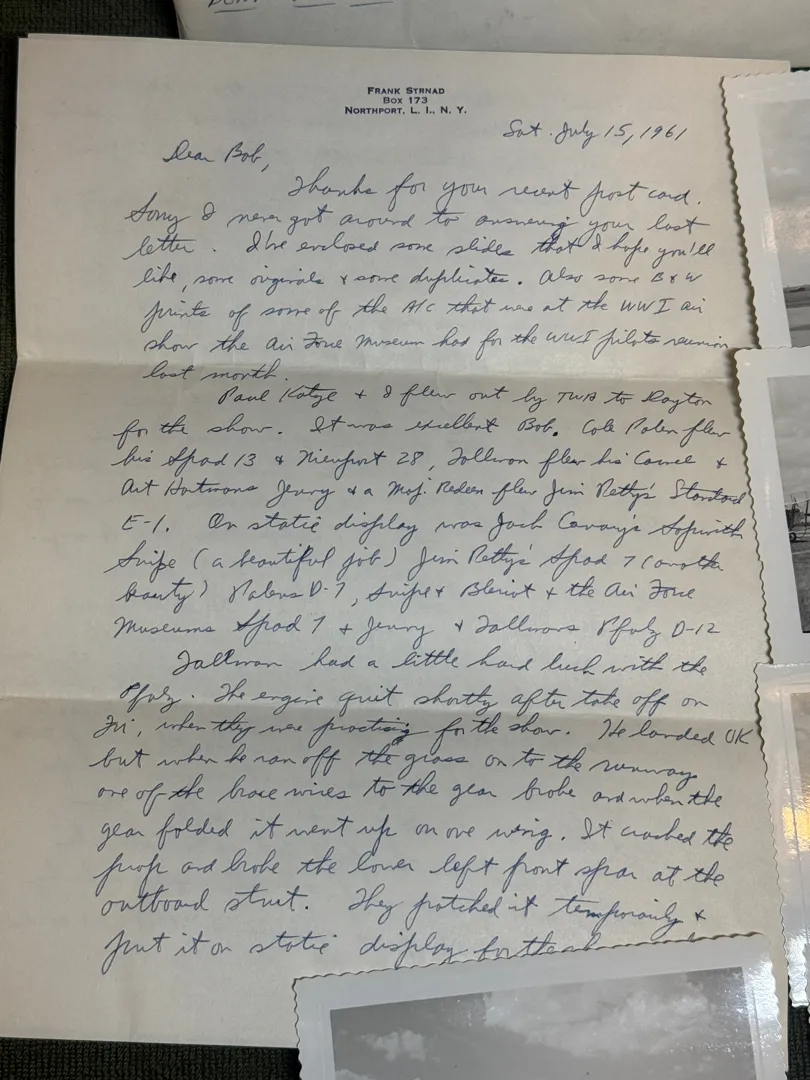 FRANK STRNAD
BOX 173
NORTHPORT, L. I., N. Y.
Sat. July 15, 1961
Dear Bob,
Thanks for your recent post card.
Sorry I never got around to answering your last
letter. I've enclosed some slides that I hope you'll
like, some originals & some duplicates. Also some B & W
prints of some of the A/C that were at the WWI air
show the Air Force Museum had for the WWI pilots reunion
last month.
Paul Katze & I flew out by TWA to Dayton
for the show. It was excellent Bob. Cole Palen flew
his Spad 13 & Nieuport 28, Tallman flew his Camel &
Art Hartmans Jenny & a Maj. Redeen flew Jim Petty's Standard
E-1. On static display was Jack Canarys Sopwith
Snipe (a beautiful job) Jim Petty's Spad 7 (another
beauty) Palens D-7, Snipe & Bleriot & the Air Force
Museums Spad 7 & Jenny & Tallmans Pfalz D-12
Tallman had a little hard luck with the
Pfalz. The engine quit shortly after take off on
Fri, when they were practising for the show. He landed OK
but when he ran off the grass on to the runway
one of the brace wires to the gear broke and when the
gear folded it went up on one wing. It cracked the
prop and broke the lower left front spar at the
outboard strut. They patched it temporarily &
put it on static display for the